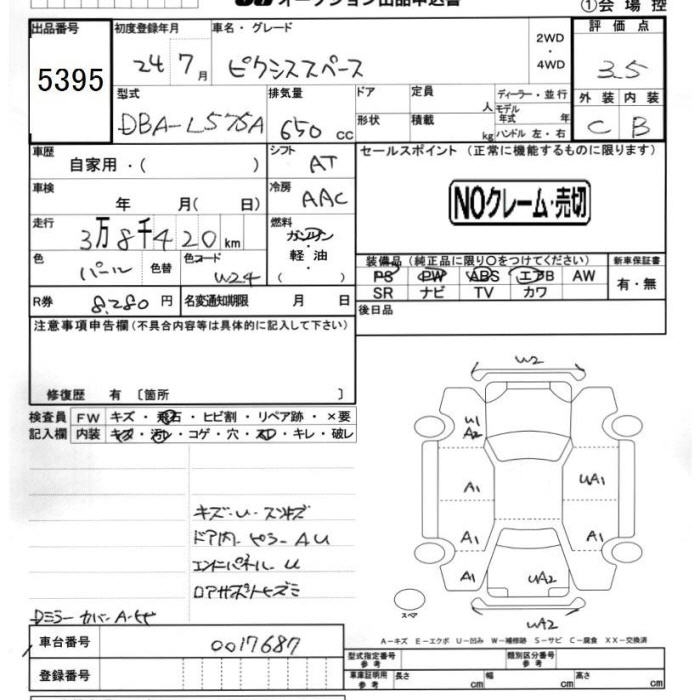 オークション出品申込書
①会場控
出品番号
5395
初度登録年月
24 7月
車名・グレード
ピクシススペース
2WD
・
4WD
評価点
3.5
型式
DBA-L575A
排気量
650 cc
ドア
形状
定員
人
積載
kg
ディーラー・並行
モデル年式 年
ハンドル 左・右
外装 内装
C B
車歴
自家用・( )
シフト
AT
セールスポイント (正常に機能するものに限ります)
車検
年 月( 日)
冷房
AAC
NOクレーム・売切
走行
3万8千420km
燃料
ガソリン
・
軽油
色
パール
色替
色コード
W24
装備品 (純正品に限り○をつけてください)
PS PW ABS エアB AW
SR ナビ TV カワ
新車保証書
有・無
R券 8,280円
名変通知期限 月 日
後日品
注意事項申告欄(不具合内容等は具体的に記入して下さい)
修復歴 有 [箇所 ]
検査員
記入欄
FW キズ・飛石・ヒビ割・リペア跡・×要
内装 キズ・汚レ・コゲ・穴・スレ・キレ・破レ
キズ・U・スリキズ
ドア内・ピラーAU
エンドパネルU
ロアサポートヒズミ
Dミラーカバー A-ヒビ
W2
U1
A2
A1
UA1
A1
A1
A1
UA2
UA2
スペア
A-キズ E-エクボ U-凹み W-補修跡 S-サビ C-腐食 XX-交換済
車台番号
0017687
登録番号
型式指定番号
参考
類別区分番号
参考
車庫証明用
参考
長さ cm
幅 cm
高さ cm